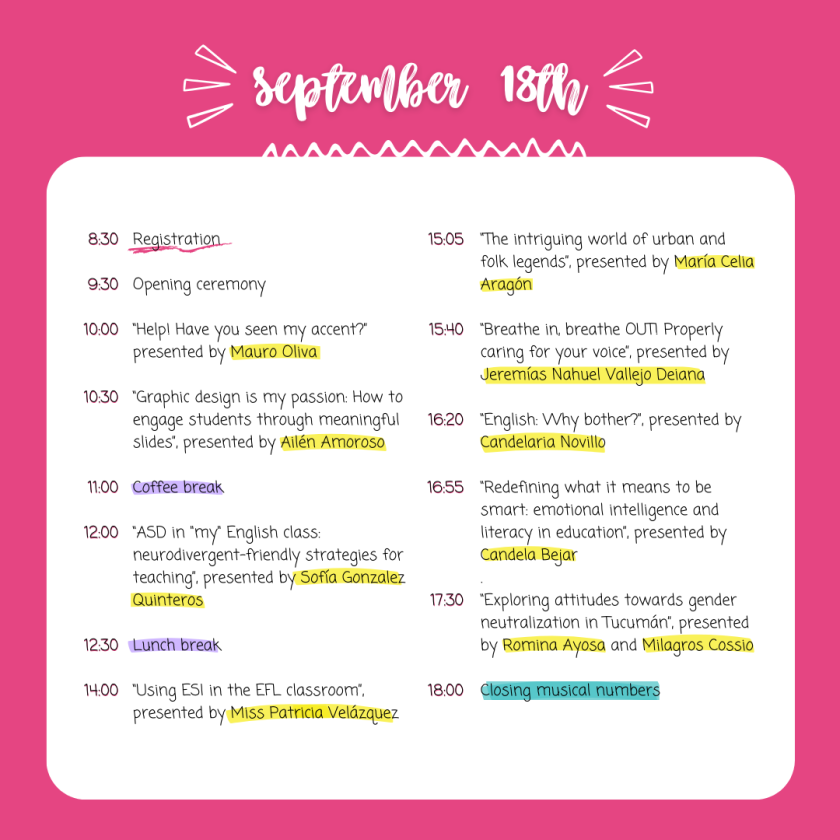 september 18th
8:30 Registration
9:30 Opening ceremony
10:00 "Help! Have you seen my accent?"
presented by Mauro Oliva
10:30 "Graphic design is my passion: How to
engage students through meaningful
slides", presented by Ailén Amoroso
11:00 Coffee break
12:00 "ASD in "my" English class:
neurodivergent-friendly strategies for
teaching", presented by Sofía Gonzalez
Quinteros
12:30 Lunch break
14:00 "Using ESI in the EFL classroom",
presented by Miss Patricia Velázquez
15:05 "The intriguing world of urban and
folk legends", presented by María Celia
Aragón
15:40 "Breathe in, breathe OUT! Properly
caring for your voice", presented by
Jeremías Nahuel Vallejo Deiana
16:20 "English: Why bother?", presented by
Candelaria Novillo
16:55 "Redefining what it means to be
smart: emotional intelligence and
literacy in education", presented by
Candela Bejar
.
17:30 "Exploring attitudes towards gender
neutralization in Tucumán", presented
by Romina Ayosa and Milagros Cossio
18:00 Closing musical numbers